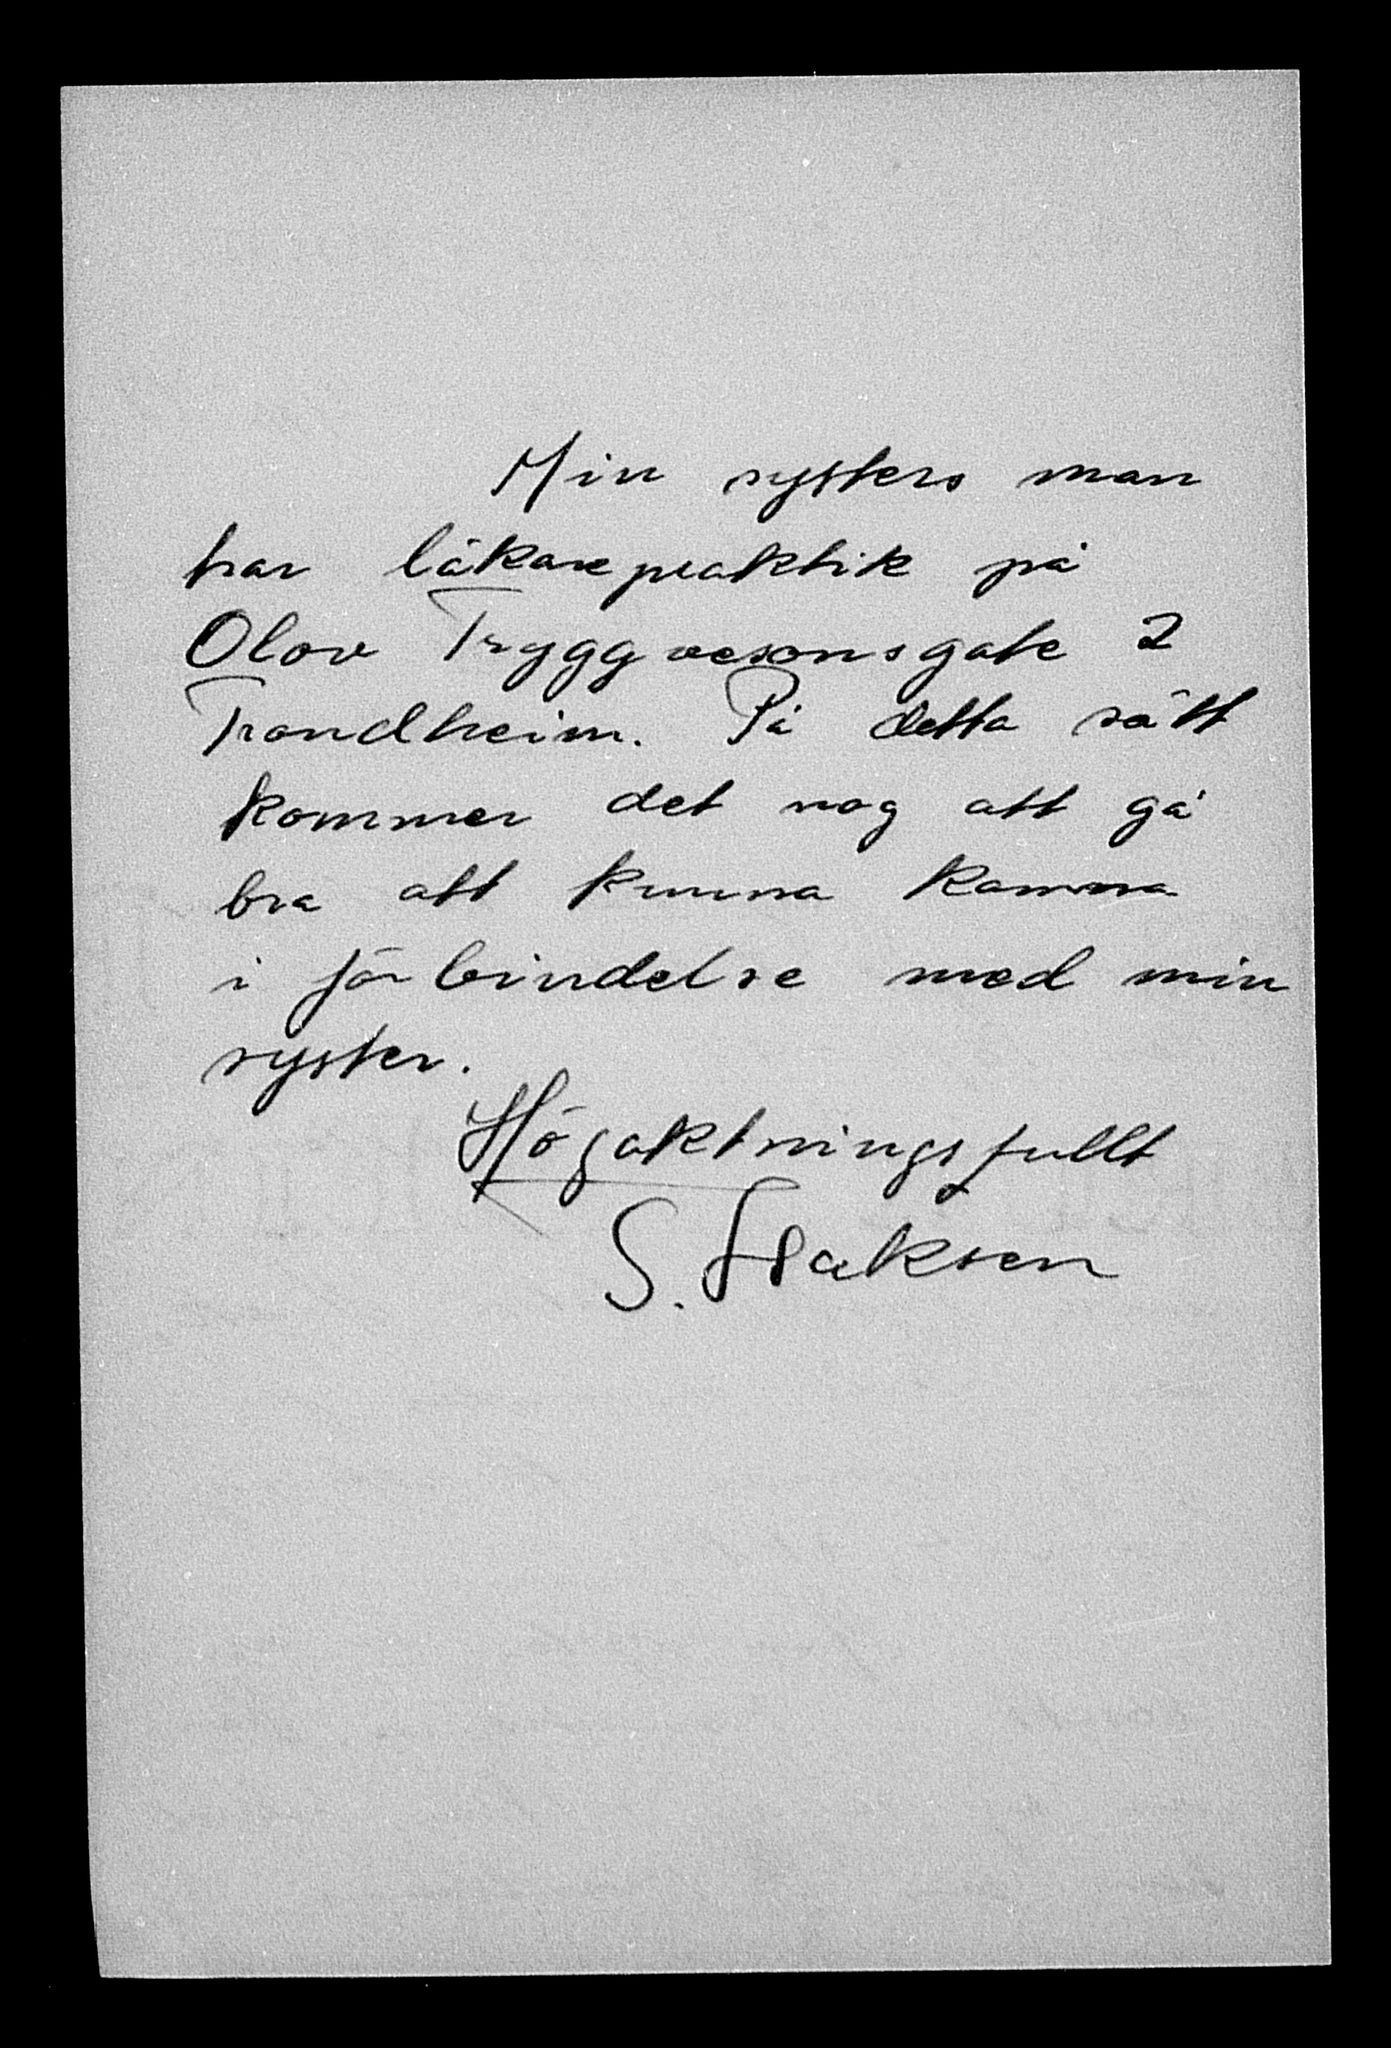 Min systers man
har läkarepraktik på
Olov Tryggvesonsgate 2
Trondheim. På detta sätt
kommer det nog att gå
bra att kunna komma
i förbindelse med min
syster.
Högaktningsfullt
S. Isaksen